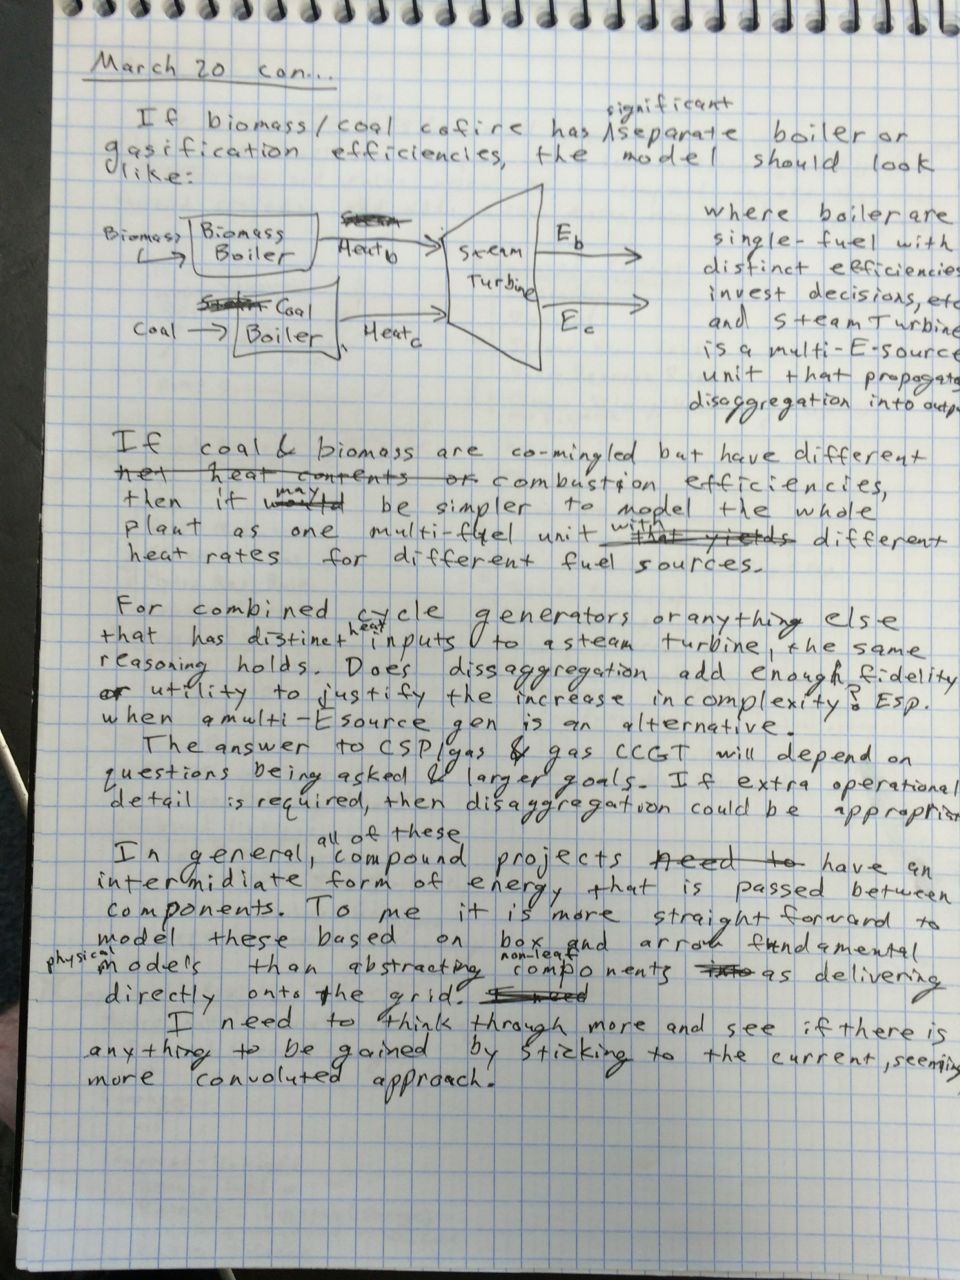 March 20 con...
significant
If biomass/coal cofire has ^ separate boiler or
gasification efficiencies, the model should look
like:
Biomass
Biomass
Boiler
Heat_b
Steam
Turbine
E_b
Coal
Coal
Boiler
Heat_c
E_c
where boiler are
single-fuel with
distinct efficiencies
invest decisions, etc
and Steam Turbine
is a multi-E-source
unit that propagat
disaggregation into outp
If coal & biomass are co-mingled but have different
net heat contents or combustion efficiencies,
may
then it would be simpler to model the whole
with
plant as one multi-fuel unit that yields different
heat rates for different fuel sources.
For combined cycle generators or anything else
heat
that has distinct inputs to a steam turbine, the same
reasoning holds. Does dissaggregation add enough fidelity
or utility to justify the increase in complexity? Esp.
when a multi-E source gen is an alternative.
The answer to CSP/gas & gas CCGT will depend on
questions being asked & larger goals. If extra operational
detail is required, then disaggregation could be appropria
all of these
In general, compound projects need to have an
intermidiate form of energy that is passed between
components. To me it is more straight forward to
model these based on box and arrow fundamental
physical non-leaf
models than abstracting components into as delivering
directly onto the grid. I need
I need to think through more and see if there is
anything to be gained by sticking to the current, seeming
more convoluted approach.